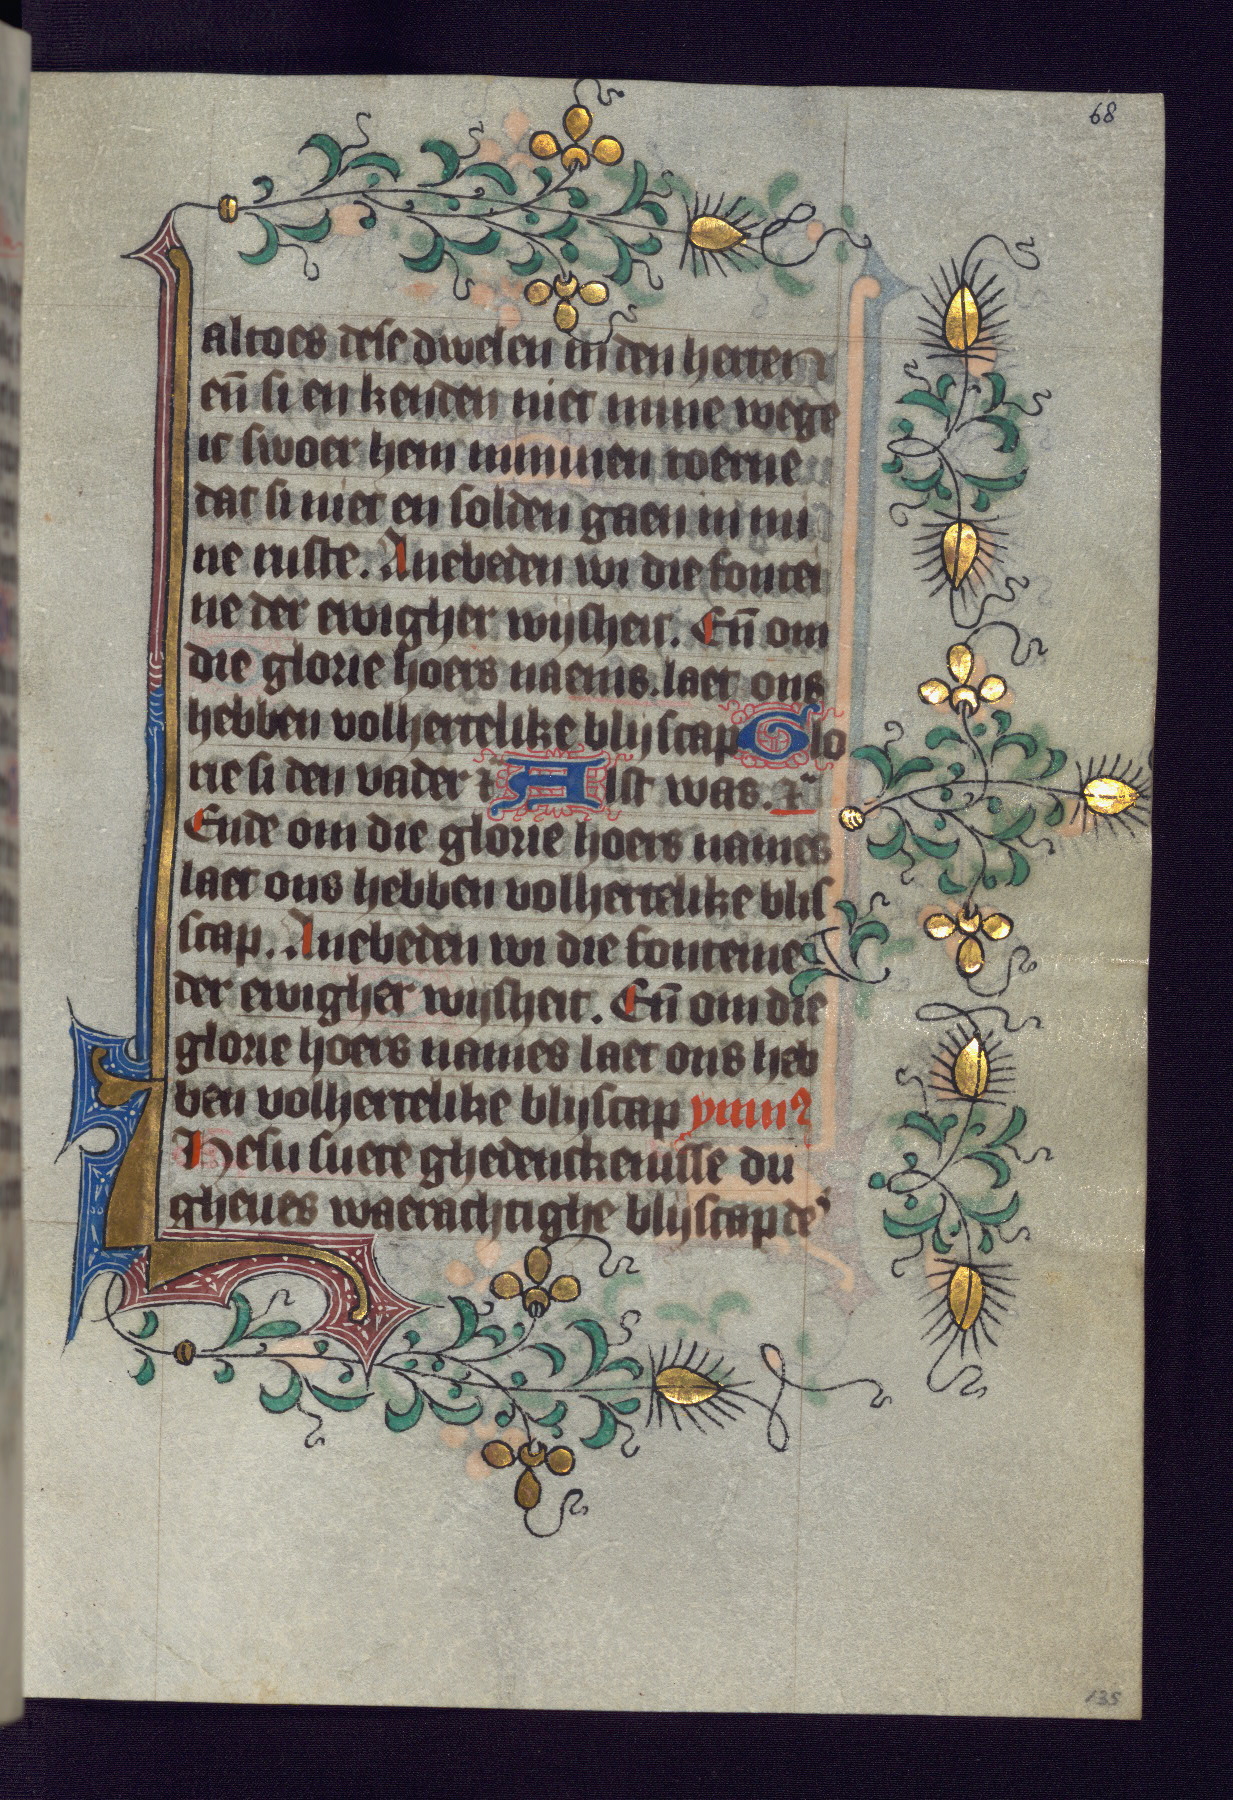 68
altoes dese dwelen in den herten
eñ si en kenden niet mine wege
ic swoer hem in minen toerne
dat si niet en solden gaen in mi
ne ruste. Anebeden wi die fontei
ne der ewigher wijsheit. Eñ om
die glorie hoers naems. laet ons
hebben volhertelike blijscap Glo
rie si den vader ⁊ Alst was. ⁊
Ende om die glorie hoers names
laet ons hebben volhertelike blis
scap. Anebeden wi die fonteine
der ewigher wijsheit. Eñ om die
glorie hoers names laet ons heb
ben volhertelike blijscap
Ihesu suete ghedenckenisse du
gheues waerachtighe blijscap de
135